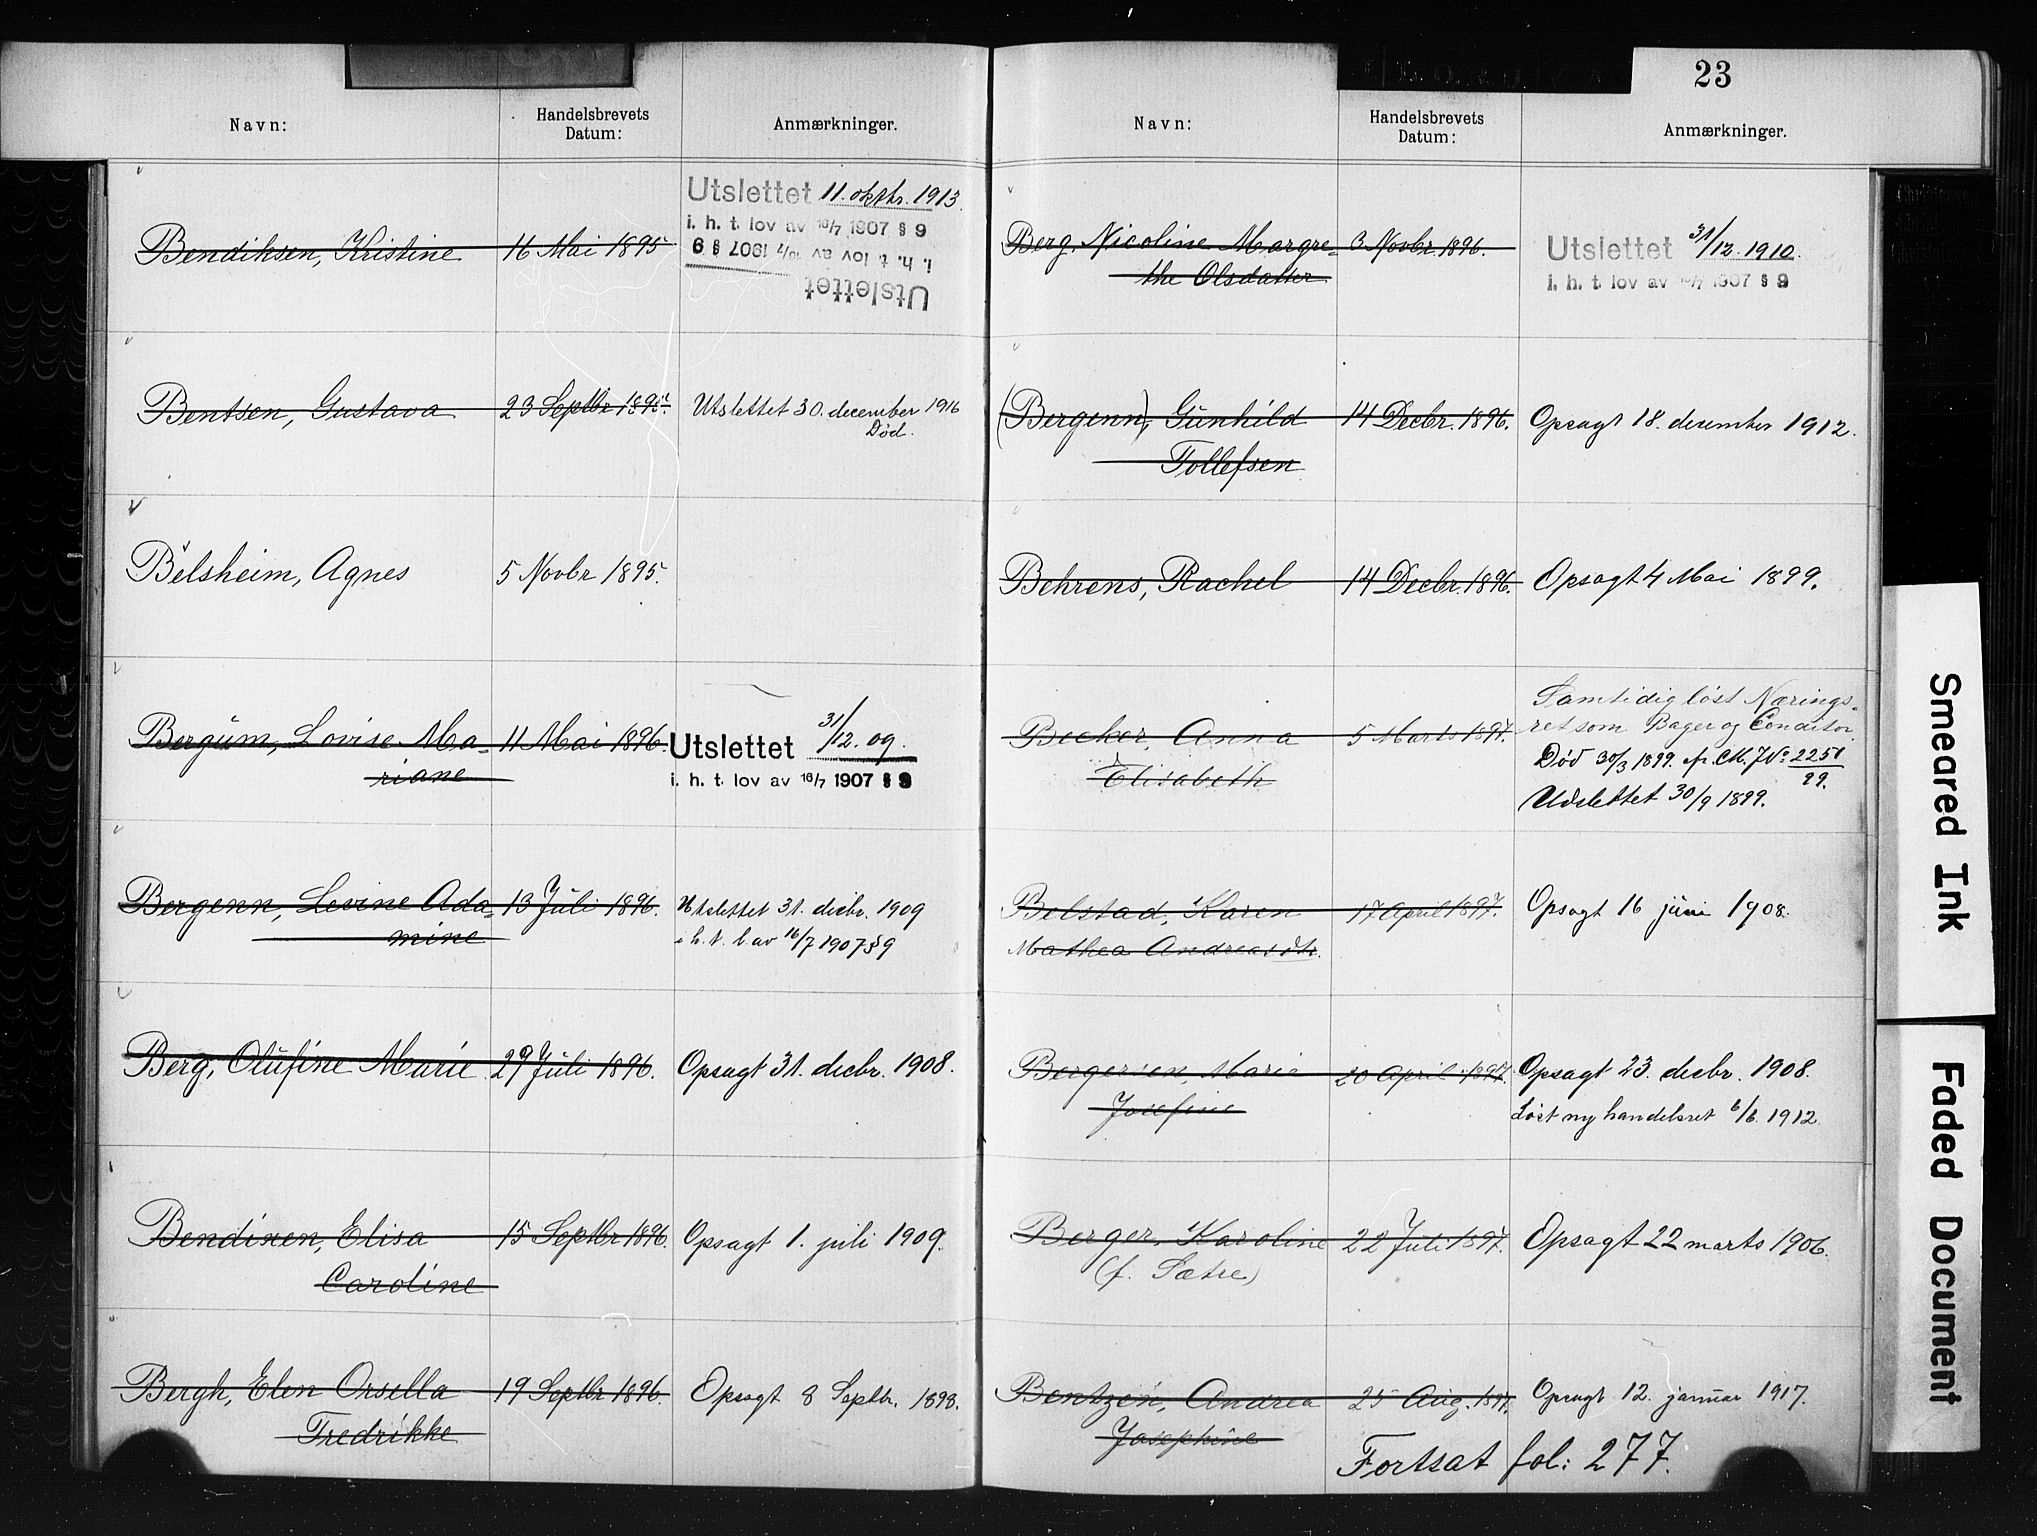 Navn:
Handelsbrevets
Datum:
Anmærkninger.
Bendiksen, Kristine
16 Mai 1895
Utslettet 11. oktbr. 1913.
i. h. t. lov av 16/7 1907 § 9
i. h. t. lov av 16/7 1907 § 9
Utslettet
Bentsen, Gustava
23 Septbr 1895.
Utslettet 30. december 1916
Død.
Belsheim, Agnes
5 Novbr 1895.
Bergum, Lovise Ma-
riane
11 Mai 1896.
Utslettet 31/12. 09.
i. h. t. lov av 16/7 1907 § 9
Bergenn, Levine Ada-
mine
13 Juli 1896.
Utslettet 31. decbr. 1909
i. h. t. l. av 16/7 1907 § 9
Berg, Olufine Marie
29 Juli 1896.
Opsagt 31. decbr. 1908.
Bendixen, Elisa
Caroline
15 Septbr 1896.
Opsagt 1. juli 1909.
Bergh, Elen Orsella
Fredrikke
19 Septbr 1896.
Opsagt 8 Septbr. 1898.
23
Navn:
Handelsbrevets
Datum:
Anmærkninger.
Berg, Nicoline Margre-
the Olsdatter
3 Novbr. 1896.
Utslettet 31/12. 1910.
i. h. t. lov av 16/7 1907 § 9
(Bergenn), Gunhild
Tollefsen
14 Decbr. 1896.
Opsagt 18. desember 1912.
Behrens, Rachel
14 Decbr. 1896.
Opsagt 4 Mai 1899.
Becker, Anna
Elisabeth
5 Marts 1897.
Samtidig løst Nærings-
ret som Bager og Conditor.
Død 30/3 1899. M. J No 2251
99.
Udslettet 30/9 1899.
Belstad, Karen
Mathea Andreasdtr.
17 April 1897.
Opsagt 16 juni 1908.
Bergersen, Marie
Josefine
20 April 1897.
Opsagt 23. decbr. 1908.
Løst ny handelsret 6/6. 1912.
Berger, Karoline
(f. Sætre)
22 Juli 1897.
Opsagt 22 marts 1906.
Bentzen, Andrea
Josephine
25 Aug. 1897.
Opsagt 12. januar 1917.
Fortsat fol: 277.
Smeared Ink
Faded Document